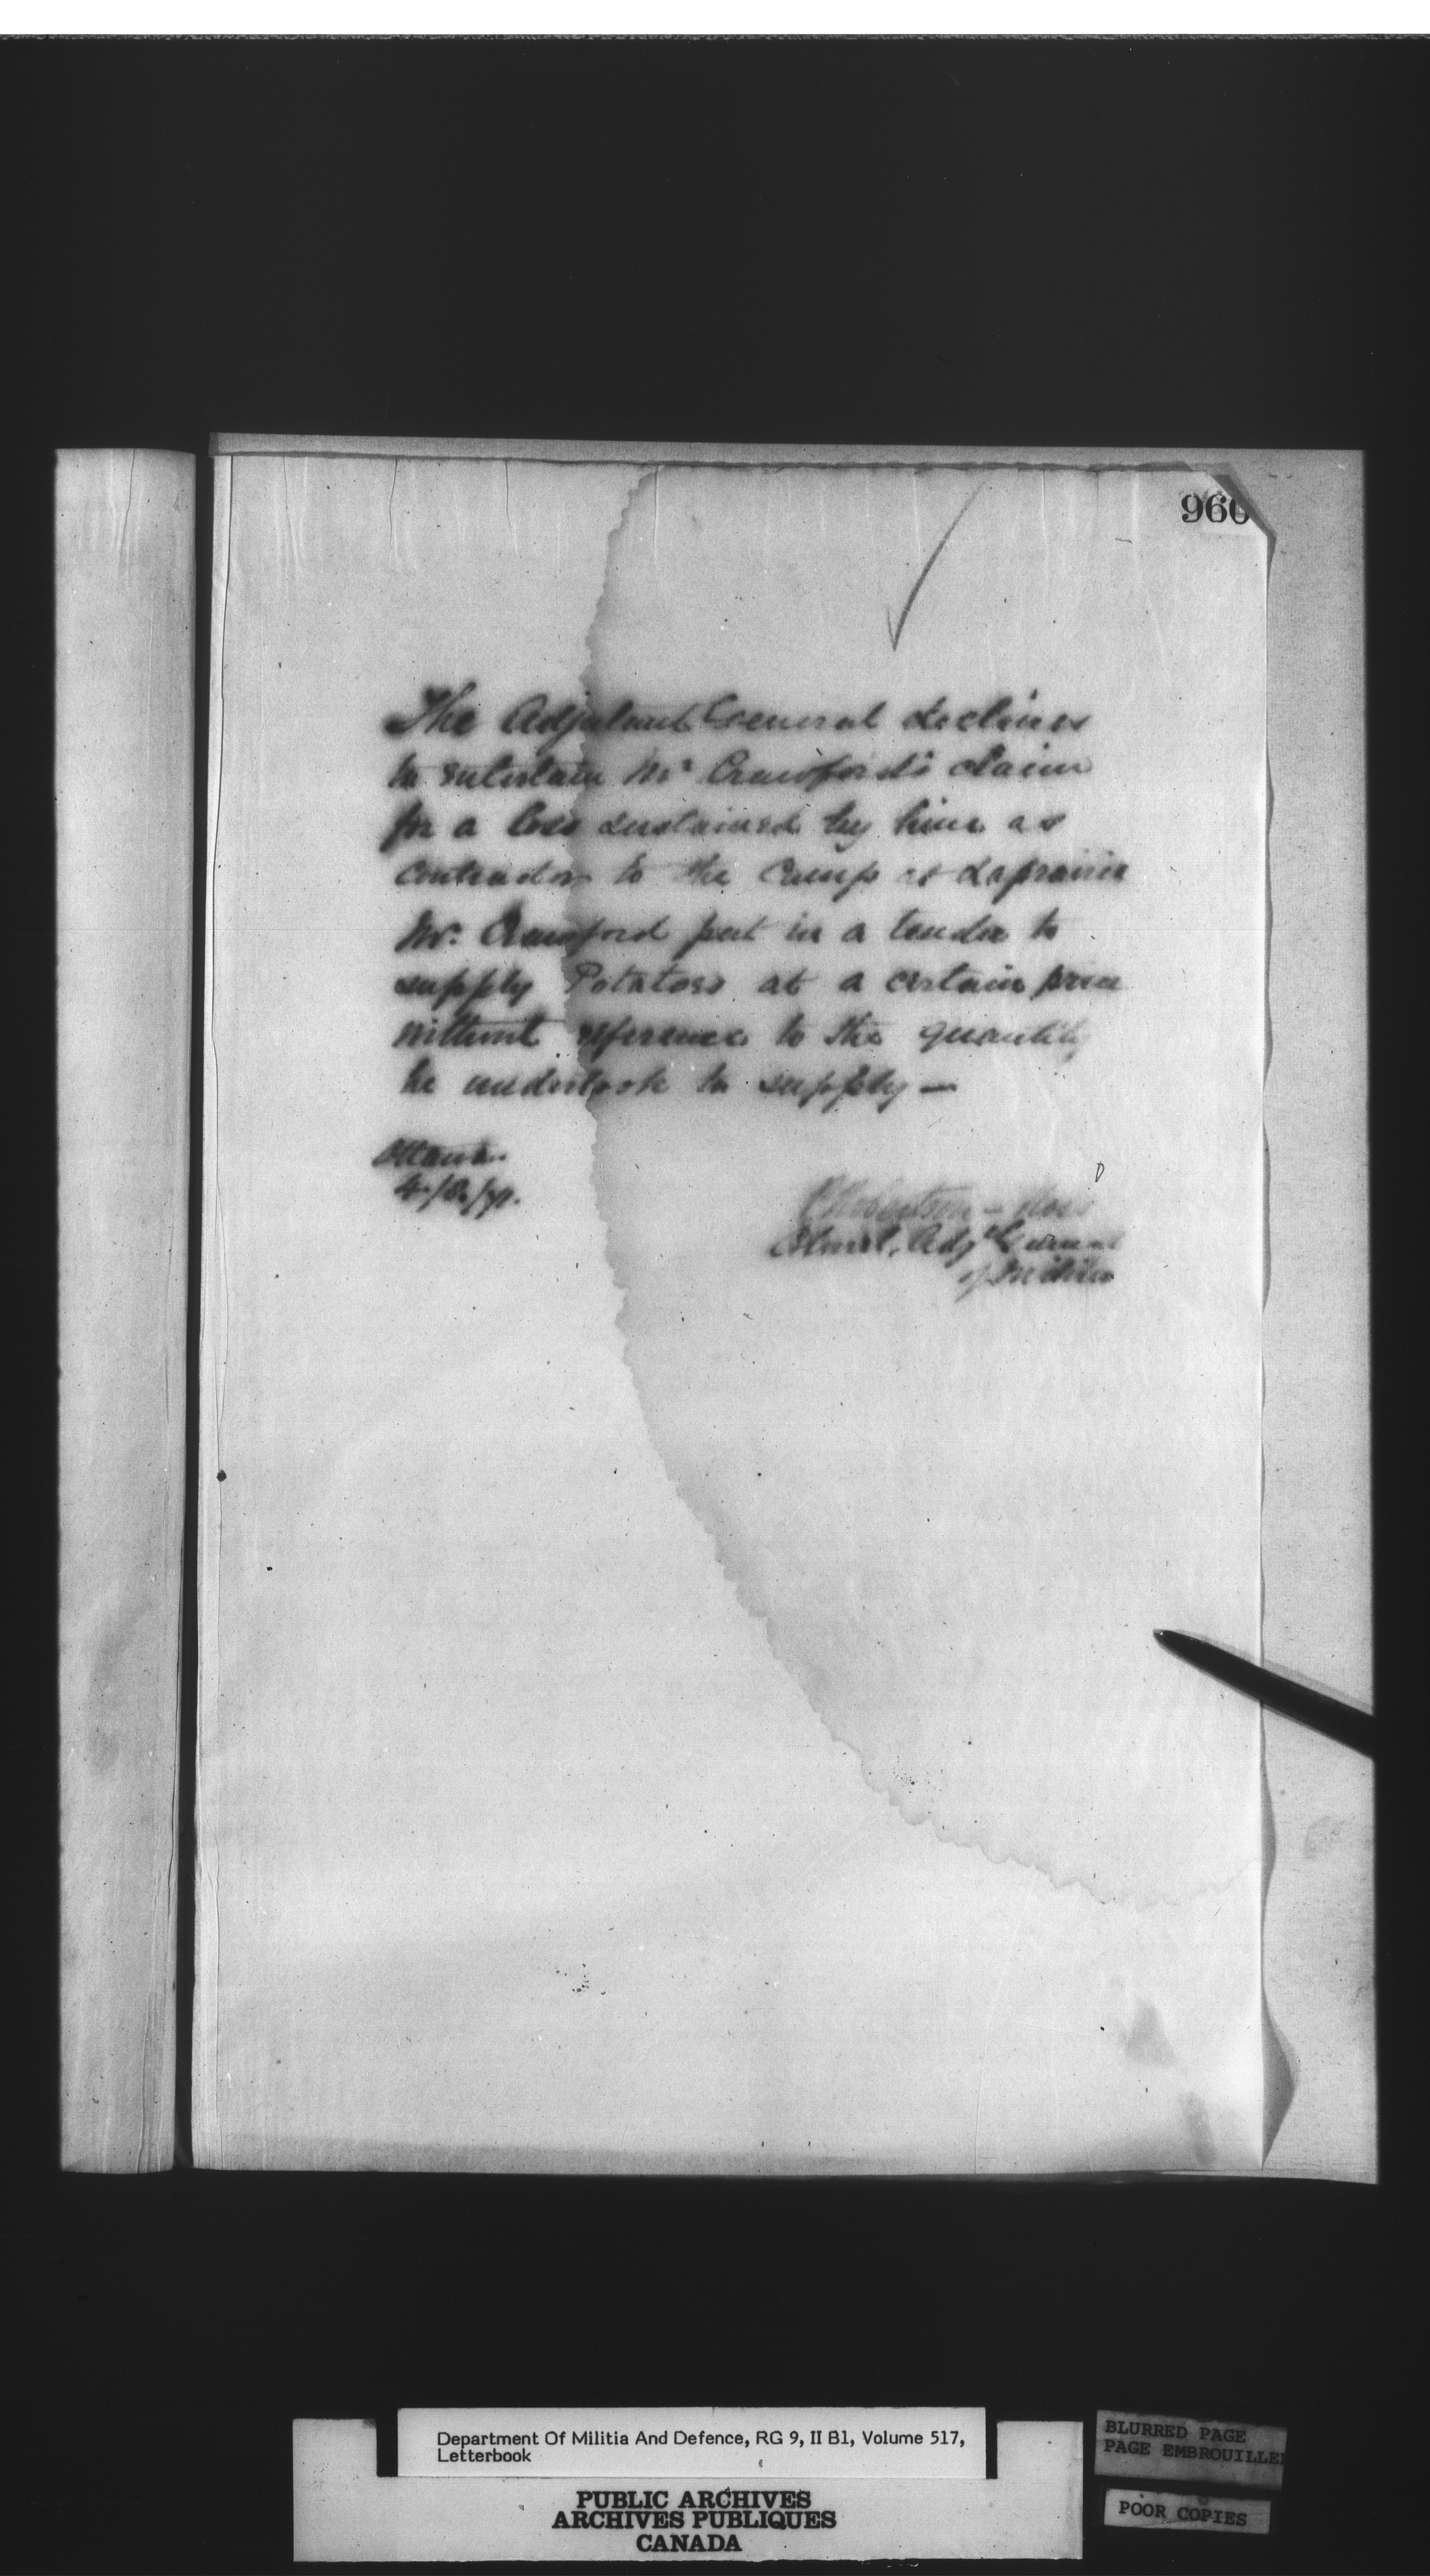 960
The Adjutant General declines
to entertain Mr Crawford's claim
for a loss sustained by him as
contractor to the Camp at Laprairie
Mr. Crawford put in a tender to
supply Potatoes at a certain price
without reference to the quantity
he undertook to supply —
Ottawa.
P Robertson - Ross
Colonel, Adjt General
of Militia
Department Of Militia And Defence, RG 9, II B1, Volume 517,
Letterbook
PUBLIC ARCHIVES
ARCHIVES PUBLIQUES
CANADA
BLURRED PAGE
PAGE EMBROUILLE
POOR COPIES